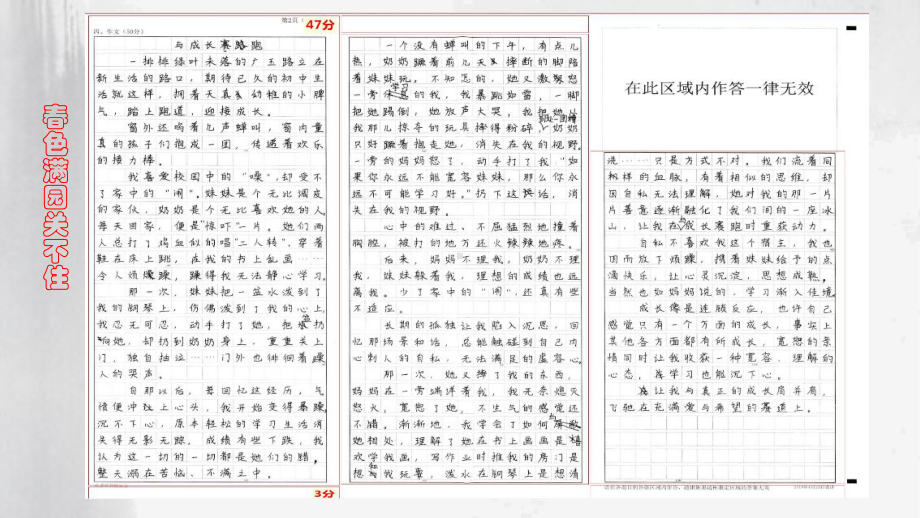 春色满园关不住
第2页
47分
四、作文（50分）
与成长赛跑
一排排绿叶未落的广玉路立在
新生活的路口，期待已久的初中生
活就这样，拥着天真幼稚的小脾
气，踏上跑道，迎接成长。
窗外还响着儿声蝉叫，窗内童
真的孩子们抱成一团，传递着欢乐
的接力棒。
我喜爱校园中的“噪”，却受不
了家中的“闹”。妹妹是个无比调皮
的家伙，奶奶是个无比喜欢她的人。
每天回家，便是“惊吓”一片。她们两
人总打了鸡血似的唱“二人转”，穿着
鞋在床上踢，在我的书上乱画……
令人烦躁，躁得我无法静心学习。
那一次，妹妹把一盆水泼到了
我的钢琴上，仿佛泼到了我的心上，
我忍无可忍，动手打了她，把盆扔
向她，却扔到奶奶身上，重重关上
门，独自抽泣……门外也徘徊着
人的哭声。
自那以后，每回忆这经历，气
愤便冲上心头，我开始变得暴躁，
沉不下心，原本轻松的学习生活消
失得无影无踪。成绩有些下跌，我
认为这一切的一切都是她们的错。
整天溺在苦恼、不满之中。
3分
一个没有蝉叫的下午，有点儿
热，奶奶蹦着前几天摔断的脚陪
着妹妹玩。不知怎的，她又激怒
一旁学习的我，我暴跳如雷，一脚
把她踢倒，她放声大哭，我把她从
我那儿掠夺的玩具摔得粉碎，奶奶
只好蹦着抱走她，消失在我的视野。
一旁的妈妈怒了，动手打了我“如
果你永远不能宽容妹妹，那么你永
远不可能学习好。”扔下这话，消
失在我的视野。
心中的难过、不屈猛烈地撞着
胸膛，被打的地方还火辣辣地疼。
后来，妈妈不理我，奶奶不理
我，妹妹躲着我，理想的成绩也远
离我。少了家中的“闹”，还真有些
不适应。
长期的孤独让我陷入沉思，回
忆那场景和话，总能触碰到自己内
心刺人的自私，无法满足的虚容心。
那一次，她又摔了我的东西，
妈妈在一旁端详着我，我无奈熄灭
怒火，宽恕了她，不生气的感觉还
不错。渐渐地，我学会了如何与
她相处，理解了她在书上画画是喜
欢学我画，写作业时推我的房门是
想和我玩耍，泼水在钢琴上是想清
在此区域内作答一律无效
洗……只是方式不对。我们流着同
样的血脉，有着相似的思维，却
因自私无法理解，她对我的那一片
片善意逐渐融化了我们间的一座冰
山，让我在与成长赛跑时重获动力。
自私不喜欢我这个霸主，我也
因而放了烦躁，携着妹妹给予的点
滴快乐，让心灵沉淀，思想成熟。
当然也如妈妈说的，学习渐入佳境。
成长像是连脑反应，也许自己
感觉只有一个方面的成长，事实上
其他各方面都有所成长，宽恕的亲
情同时让我收获一种宽容、理解的
心态，学习也能沉下心。
让我与真正的成长肩并肩，
飞驰在充满爱与希望的赛道上。